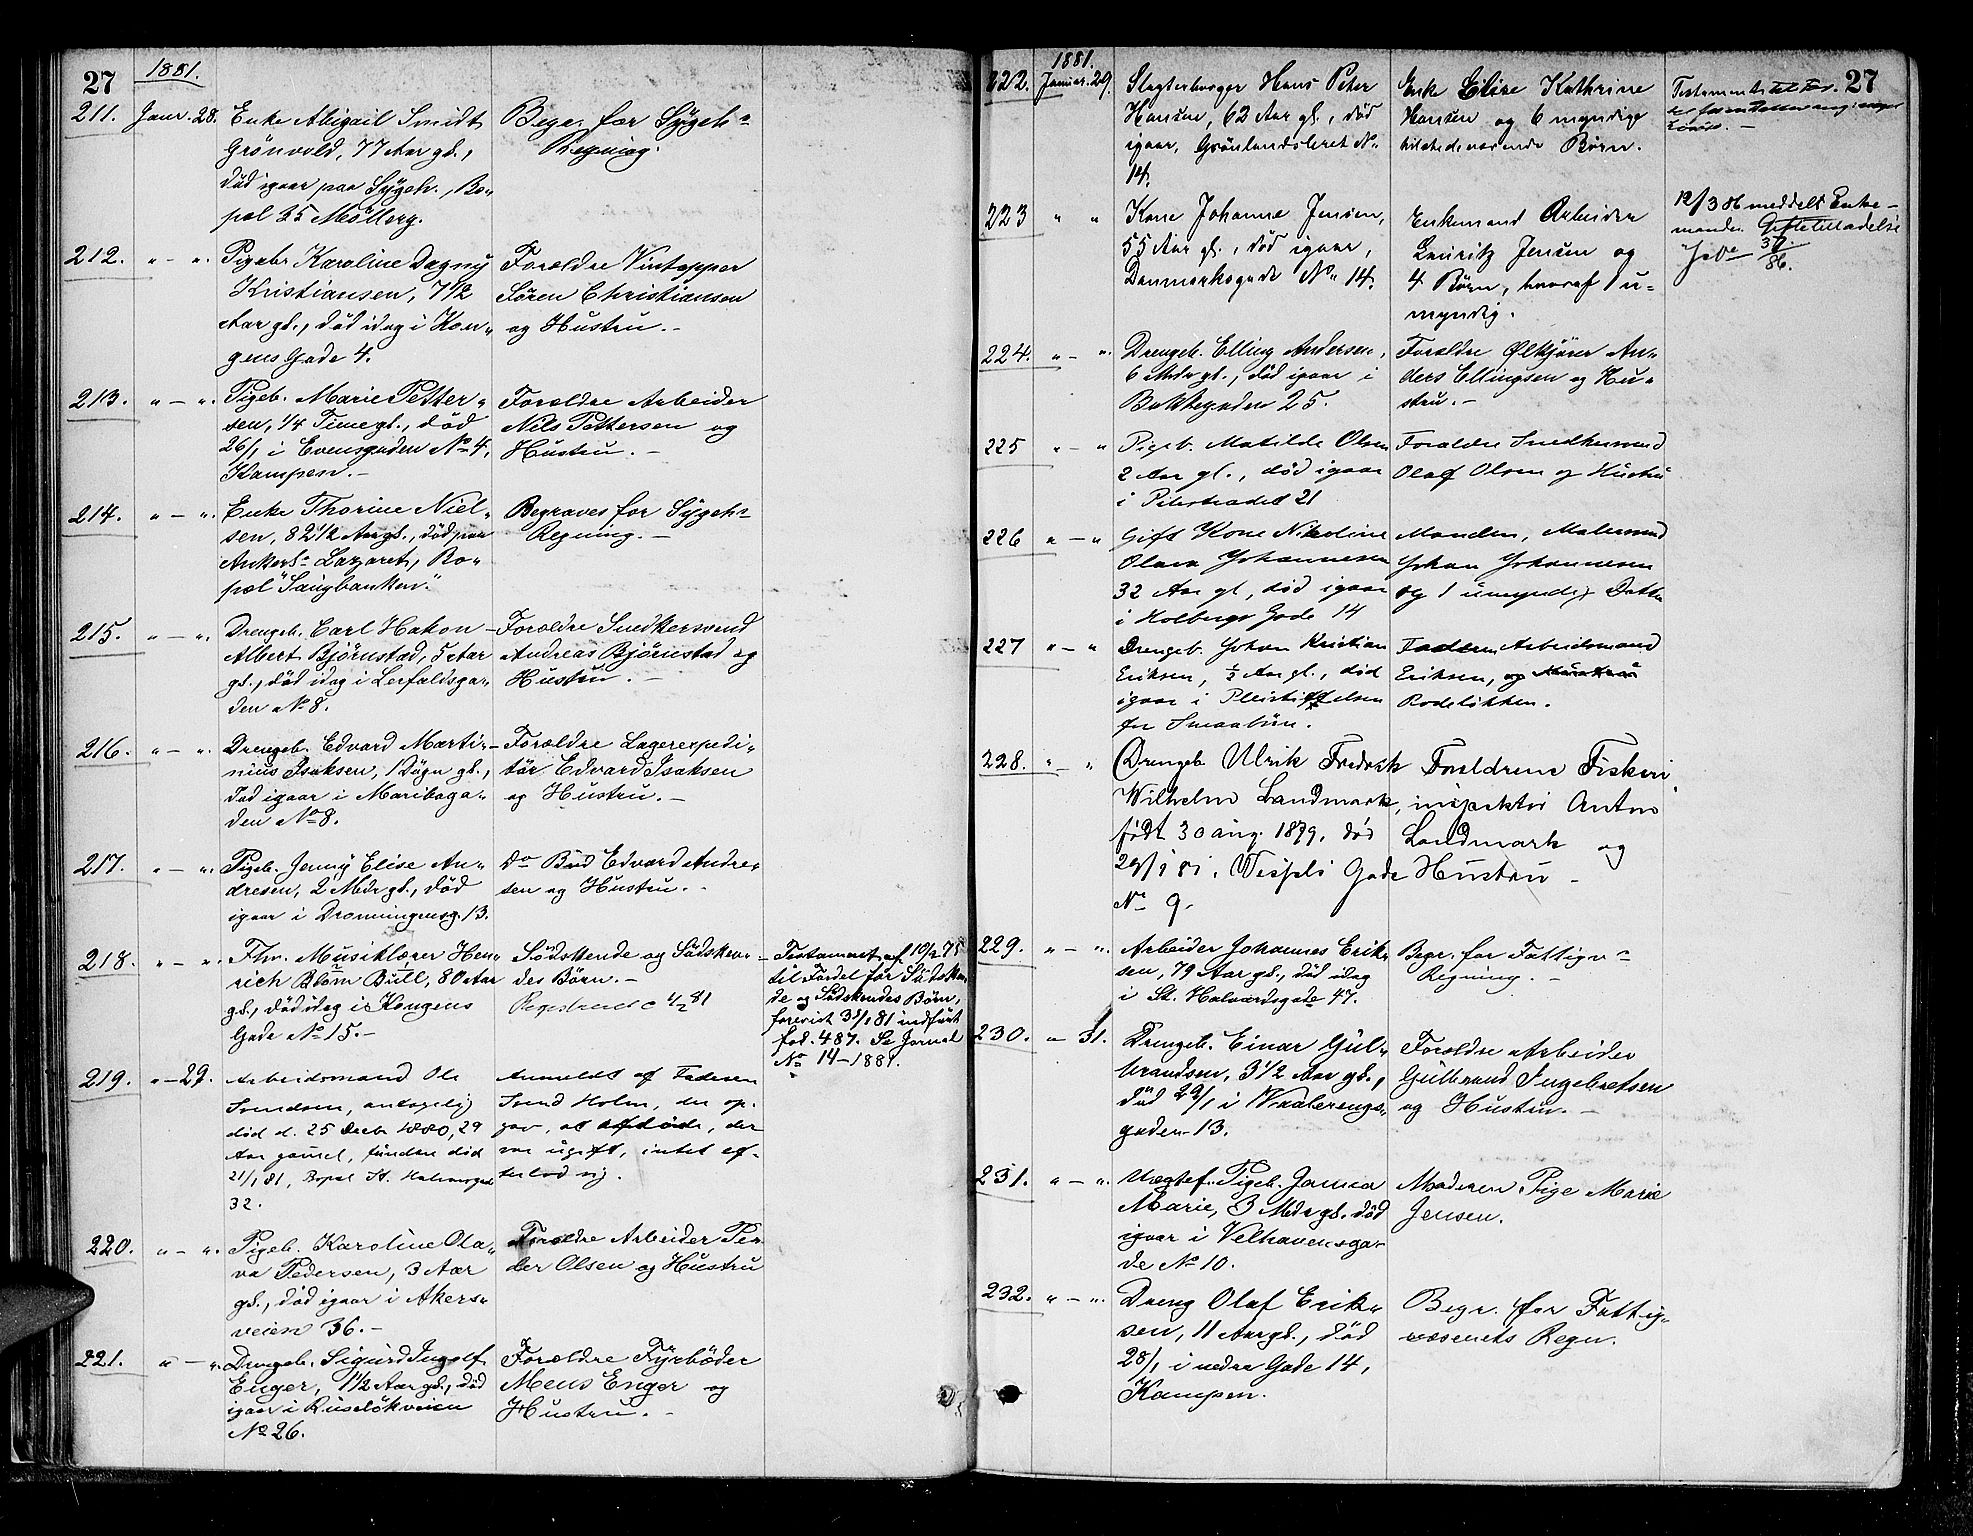 27
1881.
211. Janr. 28. Enke Abigail Smidt
Grönvold, 77 Aar gl.,
död igaar paa Sygeh., Bo-
pæl 35 Möllerg.
Begr. for Sygeh.
Regning.
212. " - " Pigebr Karoline Dagny
Kristiansen, 7 1/2
Aar gl., död idag i Kon-
gens Gade 4.
Forældre Vintapper
Sören Christiansen
og Hustru. -
213. " - " Pigeb. Marie Petter-
sen, 1/4 Time gl., död
26/1 i Evensgaden No 4,
Kampen. -
Forældre Arbeider
Nils Pettersen og
Hustru. -
214. " - " Enke Thorine Niel-
sen, 82 1/2 Aar gl., död paa
Ankerl. Lazaret, Bo-
pæl "Saugbanken".
Begraves for Sygeh.
Regning. -
215. " - " Drengeb. Carl Hakon
Albert Björnstad, 5 Aar
gl., död idag i Lerfaldsga-
den No 8.
Forældre Snedkersvend
Andreas Björnstad og
Hustru. -
216. " - " Drengeb. Edvard Marti-
nius Isaksen, 1 Dögn gl.,
död igaar i Mariboga-
den No 8.
Forældre Lagerexpedi-
tör Edvard Isaksen
og Hustru. -
217. " - " Pigeb. Jenny Elise An-
dresen, 2 Mdr gl., död
igaar i Dronningensg. 13.
Do Bud Edvard Andre-
sen og Hustru. -
218. " - " Fhv. Musiklærer Hen-
rich Blom Bull, 80 Aar
gl., död idag i Kongens
Gade No 15. -
Södskende og Södsken-
des Börn. -
4/2 81
Testament af 10/2 75
til Fordel for Södsken-
de og Södskendes Börn,
forevist 31/1 81 indfört
fol. 487. Se Jornal
No 14-1881.
219. " - 29. Arbeidsmand Ole
Svendsen, antagelig
död d. 25 Decb. 1880, 29
Aar gammel, funden död
21/1 81, Bopæl St. Halvardsgd
32.
Anmeldt af Faderen
Svend Holm, der op-
gav, at afdöde, der
var ugift, intet ef-
terlod sig.
220. " - " Pigeb. Karoline Ola-
va Pedersen, 3 Aar
gl., död igaar i Akers-
veien 36. -
Forældre Arbeider Pe-
der Olsen og Hustru
221. " - " Drengeb. Sigurd Ingolf
Enger, 1 1/2 Aar gl., död
igaar i Ruselökveien
No 26.
Forældre Fyrböder
Mens Enger og
Hustru. -
27
1881.
222. Januar. 29. Slagterborger Hans Peter
Hansen, 62 Aar gl., död
igaar, Grönlandsleret No
14.
Enke Elise Kathrine
Hansen og 6 myndige
tilstedeværende Börn.
223 " " Kone Johanne Jensen,
55 Aar gl., död igaar,
Danmarksgade No 14.
Enkemand Arbeider
Lauritz Jensen og
4 Börn, hvoraf 1 u-
myndig.
12/3 86 meddelt Enke-
manden Giftetilladelse
Jo No 37/86.
224. " - " Drengeb. Elling Andersen,
6 Mdr gl., död igaar i
Bakkegaden 25.
Forældre Ølkjörer An-
ders Ellingsen og Hu-
stru. -
225 " - " Pigeb. Matilde Olsen
2 Aar gl., död igaar
i Pilestrædet 21
Forældre Snedkersvend
Olaf Olsen og Hustru
226 " - " Gift Kone Nikoline
Olava Johannesen
32 Aar gl, död igaar
i Holbergs Gade 14
Manden, Malersvend
Johan Johannesen
og 1 umyndig Datter
227 " - " Drengeb. Johan Kristian
Eriksen, 1/2 Aar gl., död
igaar i Pleiestiftelsen
for Smaabörn.
Faderen Arbeidsmand
Eriksen, og Hustru
Rodelökken.
228. " - " Drengeb. Ulrik Fredrik
Wilhelm Landmark,
födt 30 aug. 1879, död
29/1 81, Wessels Gade
No 9.
Forældrene Fiskeri-
inspektör Anton
Landmark og
Hustru -
229. " - " Arbeider Johannes Erik-
sen, 79 Aar gl., död idag
i St. Halvardsgade 47.
Begr. for Fattigv.
Regning -
230. " 31. Drengeb. Einar Gul-
brandsen, 3 1/2 Aar gl.,
död 29/1 i Waalerengs-
gaden 13.
Forældre Arbeider
Gulbrand Ingebretsen
og Hustru. -
231. " - " Uægtef. Pigeb. Janna
Marie, 3 Mdr gl. död
igaar i Velhavensga-
de No 10.
Moderen Pige Marie
Jensen.
232. " - " Dreng Olaf Erik-
sen, 11 Aar gl., död
28/1 i nedre Gade 14,
Kampen.
Begr. for Fattig-
væsenets Regn.
27